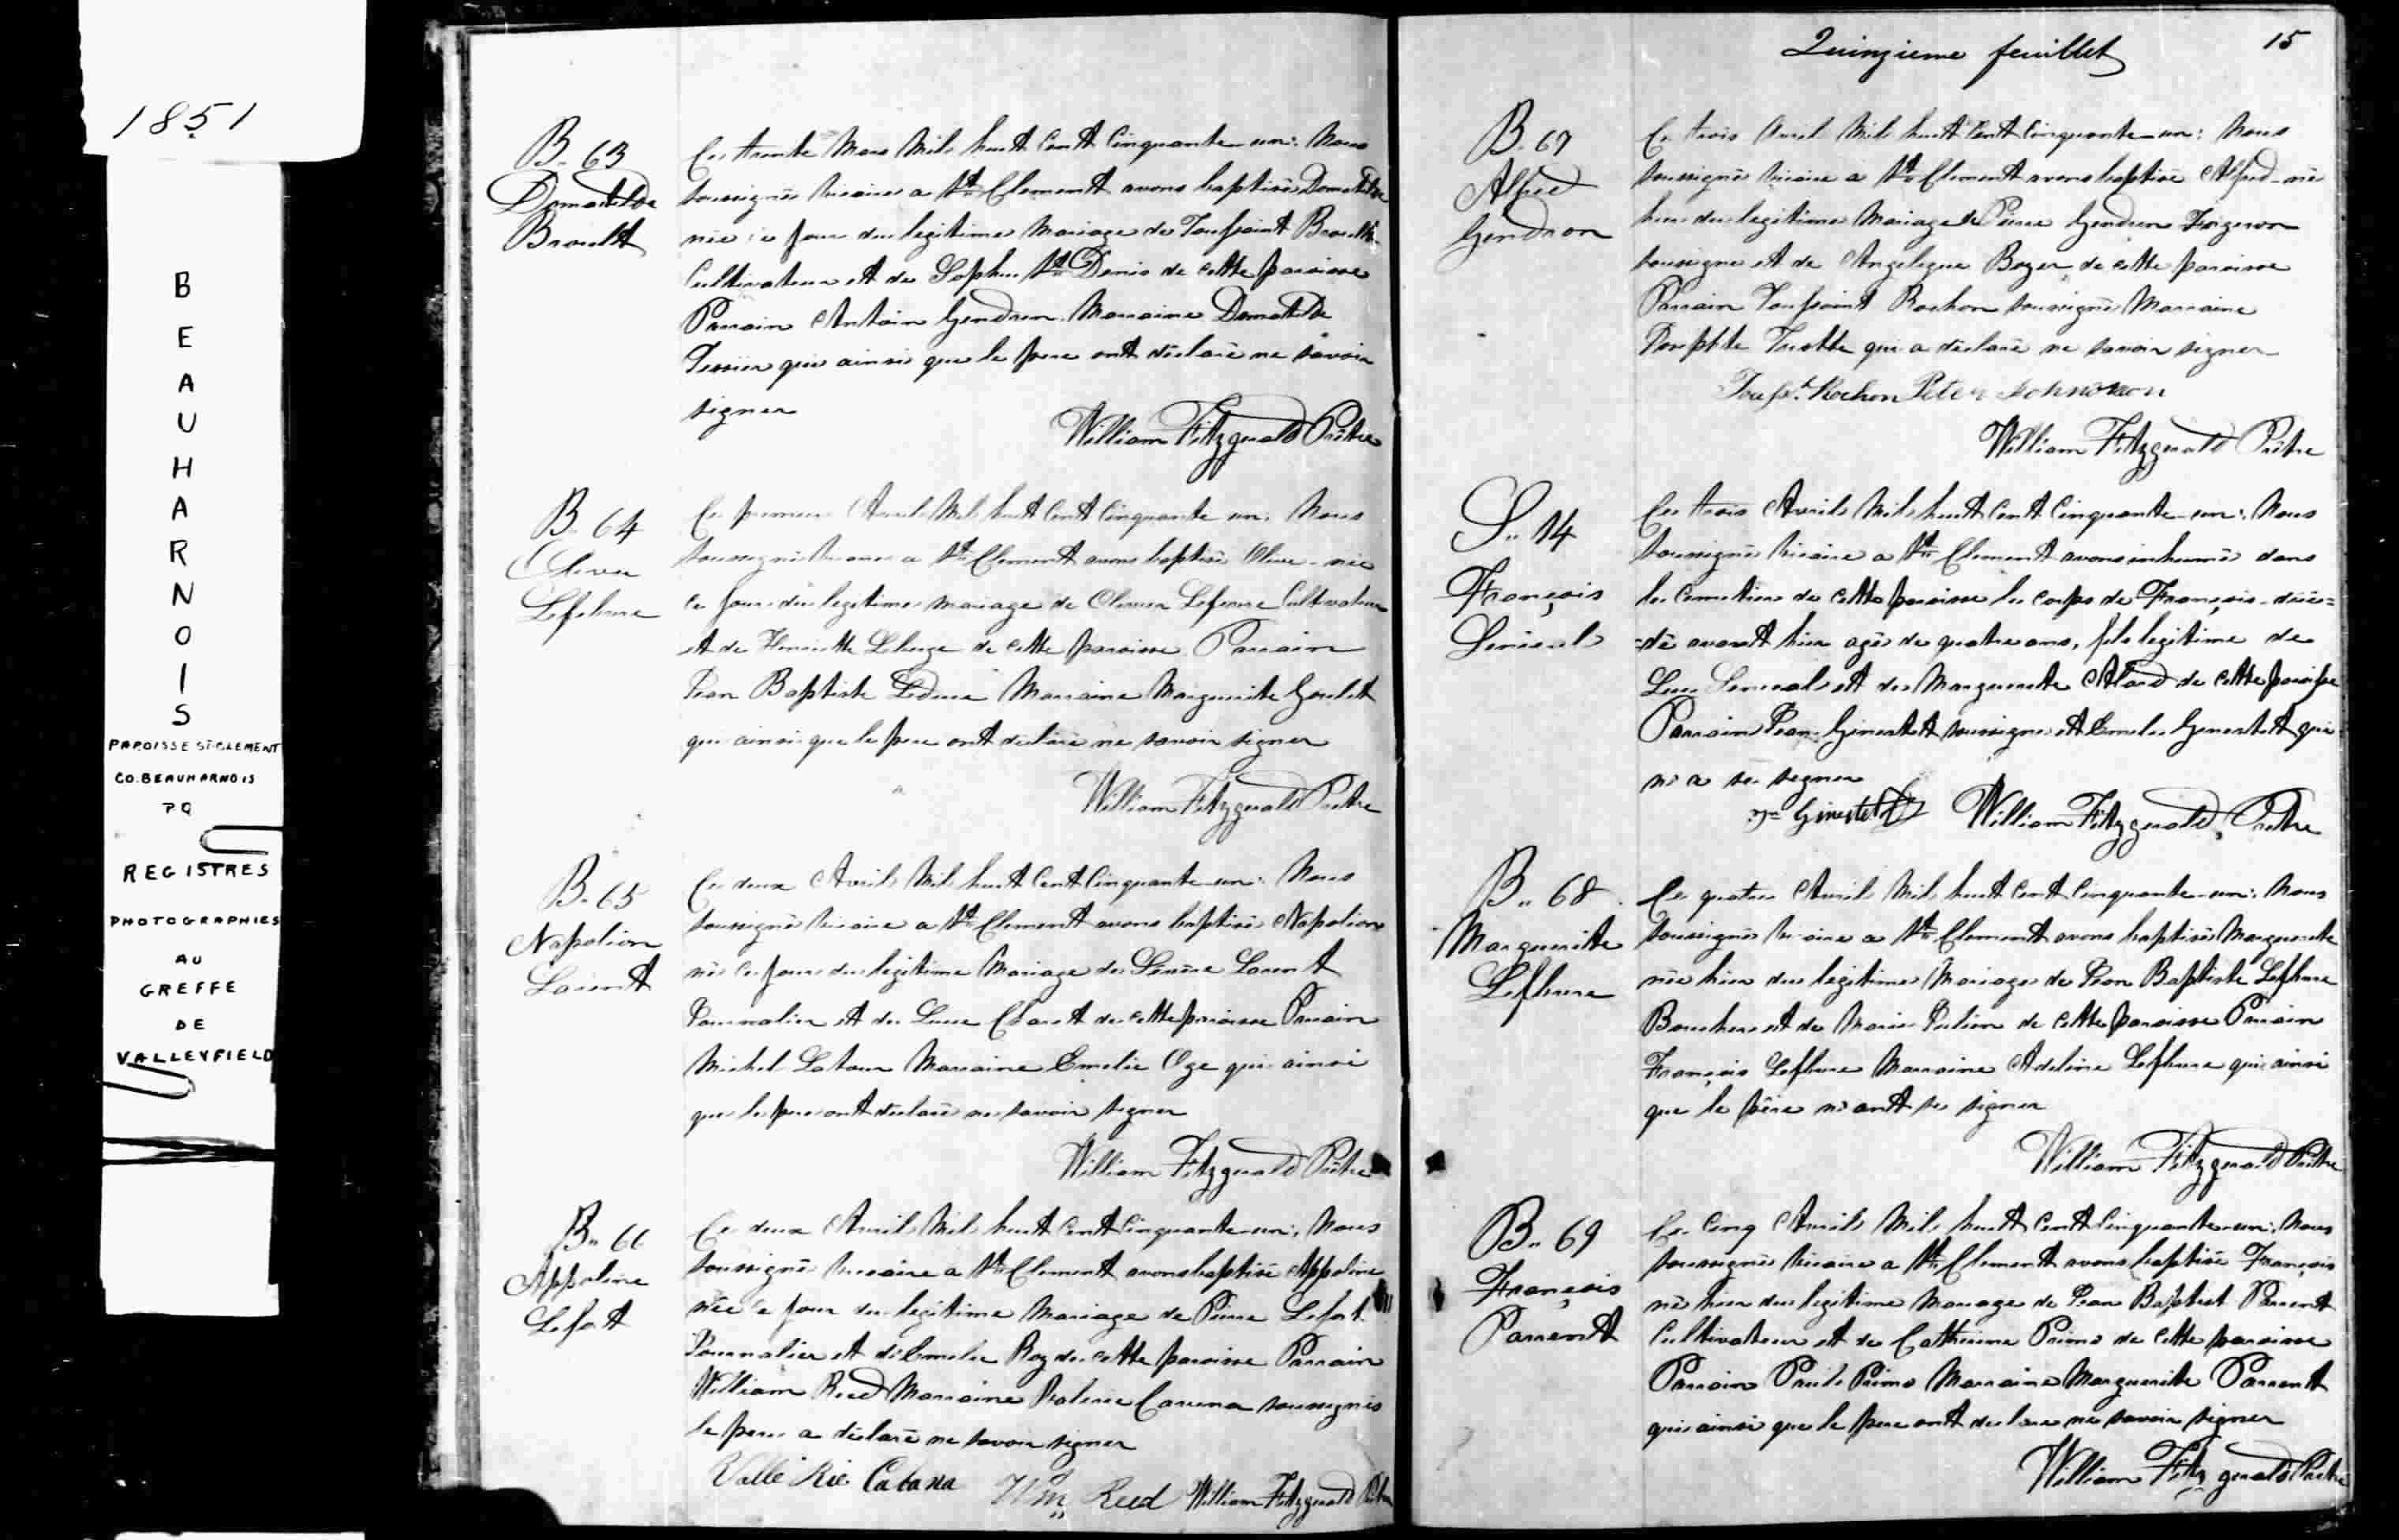 1851
BEAUHARNOIS
PAROISSE ST-CLEMENT
CO. BEAUHARNOIS
PQ
REGISTRES
PHOTOGRAPHIES
AU
GREFFE
DE
VALLEYFIELD
B. 63
Domatilde
Brault
Ce trente Mars Mil huit Cent Cinquante-un: Nous
soussigné vicaire a St Clement avons baptisé Domatilde
née ce jour du legitime Mariage de Toussaint Brault
Cultivateur et de Sophie St Denis de cette paroisse
Parrain Antoin Gendron Marraine Domatilde
Tessier qui ainsi que le pere ont déclaré ne savoir
signer
William Fitzgerald Prêtre
B. 64
Olivier
Lefebvre
Ce premier Avril Mil huit Cent Cinquante un: Nous
soussigné vicaire a St Clement avons baptisé
ce jour du legitime mariage de Olivier Lefebvre Cultivateur
et de Henriette de cette paroisse Parrain
Jean Baptiste Leduc Marraine Marguerite Goulet
qui ainsi que le pere ont declaré ne savoir signer
William Fitzgerald Prêtre
B. 65
Napoleon
Laurent
Ce deux Avril Mil huit Cent Cinquante-un: Nous
soussigné vicaire a St Clement avons baptisé Napoleon
né ce jour du legitime Mariage de Laurent
Journalier et de Luce de cette paroisse Parrain
Michel Latour Marraine Emelie Oge qui ainsi
que le pere ont déclaré ne savoir signer
William Fitzgerald Prêtre
B.. 66
Appoline
Lefort
Ce deux Avril Mil huit Cent Cinquante-un: Nous
soussigné vicaire a St Clement avons baptisé Appoline
née ce jour du legitime Mariage de Pierre Lefort
Journalier et d'Emelie Roy de cette paroisse Parrain
William Reed Marraine soussignés
le pere a déclaré ne savoir signer
Valle Rie Cabana Wm Reed William Fitzgerald Prêtre
Quinzieme feuillet
15
B. 67
Alfred
Gendron
Ce trois Avril Mil huit Cent Cinquante-un: Nous
soussigné vicaire a St Clement avons baptisé Alfred né
hier du legitime Mariage de Pierre Gendron Forgeron
soussigné et de Angelique Boyer de cette paroisse
Parrain Toussaint Rochon soussigné Marraine
qui a déclaré ne savoir signer
Rochon Peter Johnson
William Fitzgerald Prêtre
S.. 14
François
Ce trois Avril Mil huit Cent Cinquante-un: Nous
soussigné vicaire a St Clement avons inhumé dans
le Cimetiere de cette paroisse le corps de François décé=
=dé avant hier agé de quatre ans, fils legitime de
Luc et de Marguerite Alard de cette paroisse
Parrain Jean Ginestet soussigné et Emelie Ginestet qui
n'a su signer
Jn Ginestet William Fitzgerald, Prêtre
B.. 68
Marguerite
Lefebvre
Ce quatre Avril Mil huit Cent Cinquante-un: Nous
soussigné vicaire a St Clement avons baptisé Marguerite
née hier du legitime Mariage de Jean Baptiste Lefebvre
Boucher et de Marie de cette paroisse Parrain
François Lefebvre Marraine Adeline Lefebvre qui ainsi
que le père n'ont su signer
William Fitzgerald Prêtre
B.. 69
François
Parrent
Ce Cinq Avril Mil huit Cent Cinquante-un: Nous
soussigné vicaire a St Clement avons baptisé François
né hier du legitime Mariage de Jean Baptist Parrent
Cultivateur et de Catherine Primo de cette paroisse
Parrain Paul Primo Marraine Marguerite Parrent
qui ainsi que le pere ont declaré ne savoir signer
William Fitzgerald Prêtre